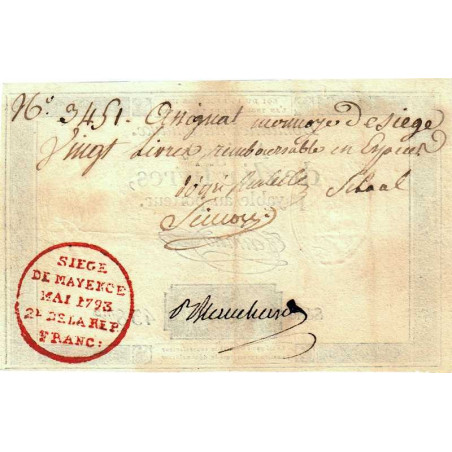 No. 3451. Assignat monnoye de siege
Vingt Livres remboursable en Especes
Schaal
Simon
SIEGE
DE MAYENCE
MAI 1793
2e DE LA REP
FRANC: